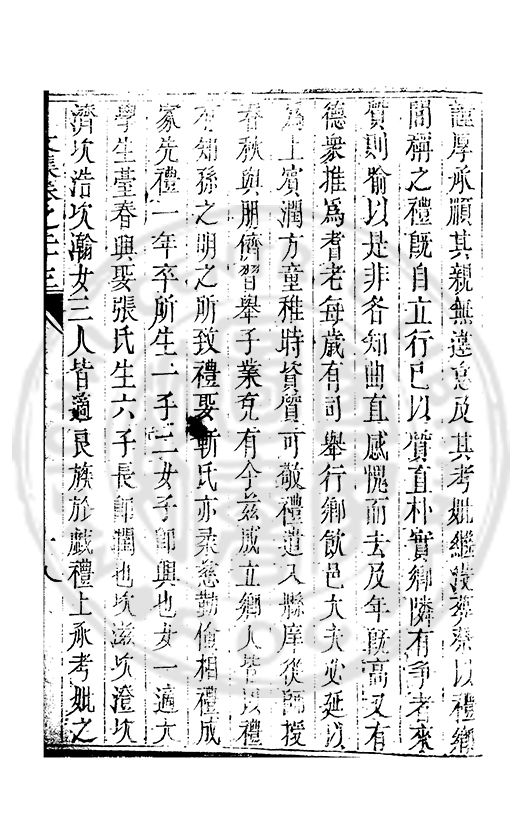 謹厚承順其親無違意及其考妣繼没葬祭以禮鄉
閭稱之禮既自立行已以質直朴實鄉隣有爭者來
質則諭以是非各知曲直感愧而去及年既高又有
德衆推為耆老每歲有司舉行鄉飲邑大夫必延以
為上賓潤方童稚時資質可敬禮遣入縣庠從師授
春秋與朋儕習舉子業竟有今兹成立鄉人皆以禮
有知孫之明之所致禮娶靳氏亦柔慈勤儉相禮成
家先禮一年卒所生一子二女子即興也女一適太
學生臺春興娶張氏生六子長即潤也次滋次澄次
濟次浩次瀚女三人皆適良族於戲禮上承考妣之
文集卷之二十三
十八